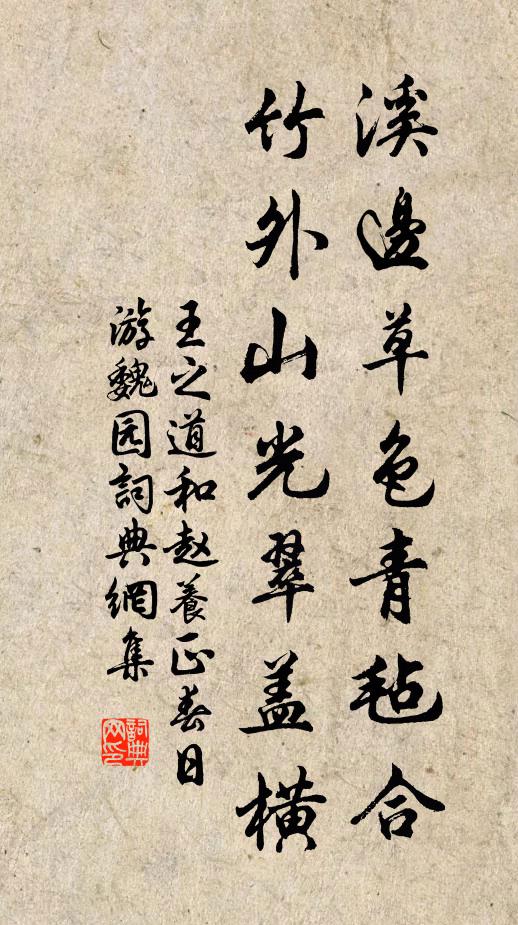 溪邊草色青毡合
竹外山光翠蓋橫
王之道和赵養正春日
游魏园詞典網集
詞典网印